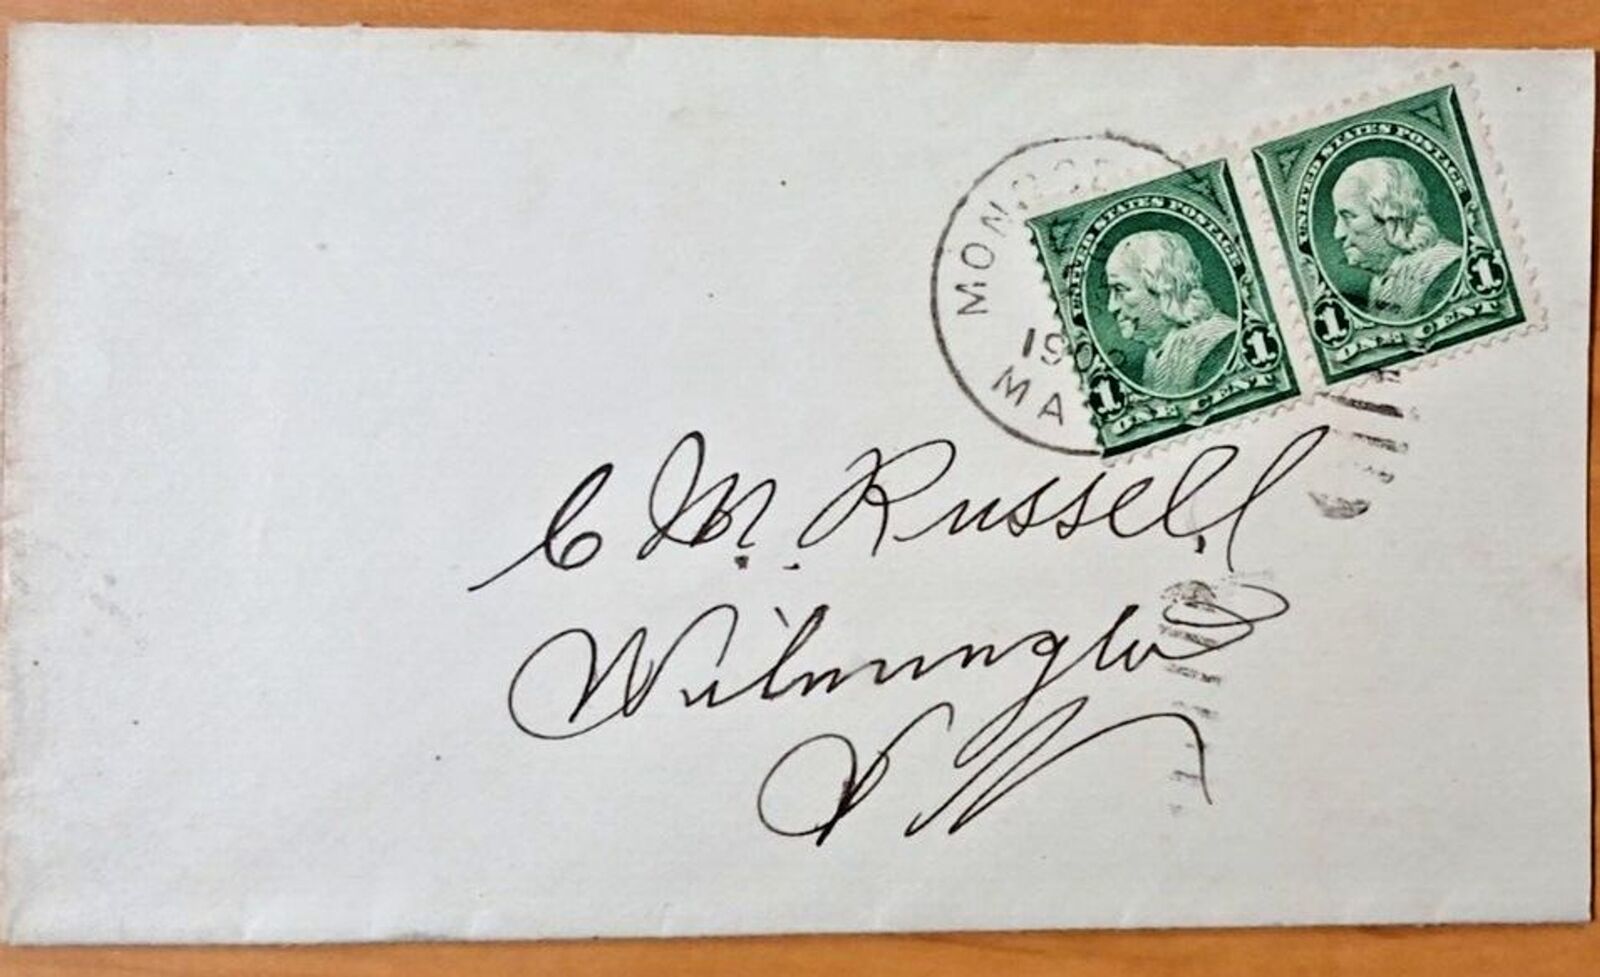 UNITED STATES POSTAGE
1 1
ONE CENT
UNITED STATES POSTAGE
1 1
ONE CENT
MA
C M. Russell,
Wilmington
Vt